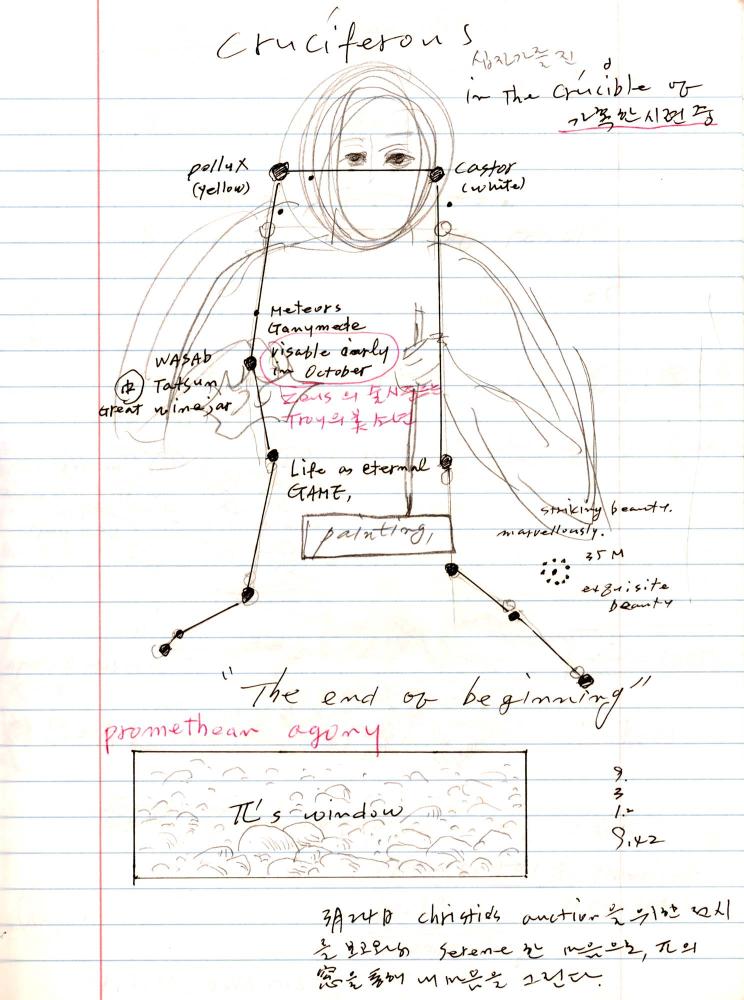 Cruciferous
십자가를 진
in The Crucible of
가혹한 시련 중
pollux
(yellow)
castor
(white)
Meteors
Ganymede
visable early
in October
WASAB
Tatsun
Great winejar
Zeus의 술시중드는
Troy의 美소년
Life as eternal
GAME,
painting,
striking beauty.
marvellously.
35 M
exquisite
beauty
"The end of beginning"
promethean agony
π's window
9.
3
1.2
9.42
christies auction을 위한 전시
를 보고와서 serene한 마음으로, π의
窓을 통해 내 마음을 그린다.